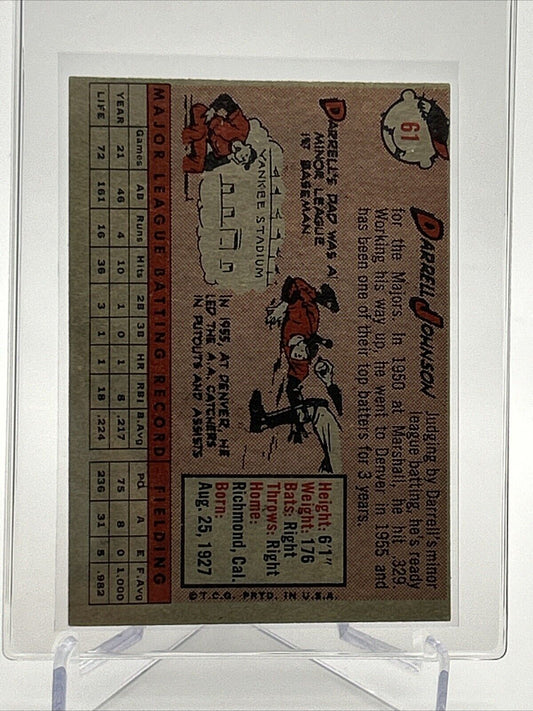 61
DARRELL JOHNSON
Judging by Darrell's minor
league batting, he's ready
for the Majors. In 1950 at Marshall, he hit .329
Working his way up, he went to Denver in 1955 and
has been one of their top batters for 3 years.
DARRELL'S DAD WAS A
MINOR LEAGUE
1ST BASEMAN.
YANKEE STADIUM
IN 1955, AT DENVER, HE
LED THE A.A. CATCHERS
IN PUTOUTS AND ASSISTS
Height: 6'1"
Weight: 176
Bats: Right
Throws: Right
Home:
Richmond, Cal.
Born:
Aug. 25, 1927
© T.C.G. PRTD. IN U.S.A.
MAJOR LEAGUE BATTING RECORD FIELDING
Games AB Runs Hits 2B 3B HR RBI B.Avg PO A E F.Avg
YEAR 21 46 4 10 1 0 1 8 .217 75 8 0 1.000
LIFE 72 161 16 36 3 1 1 18 .224 236 31 5 .982